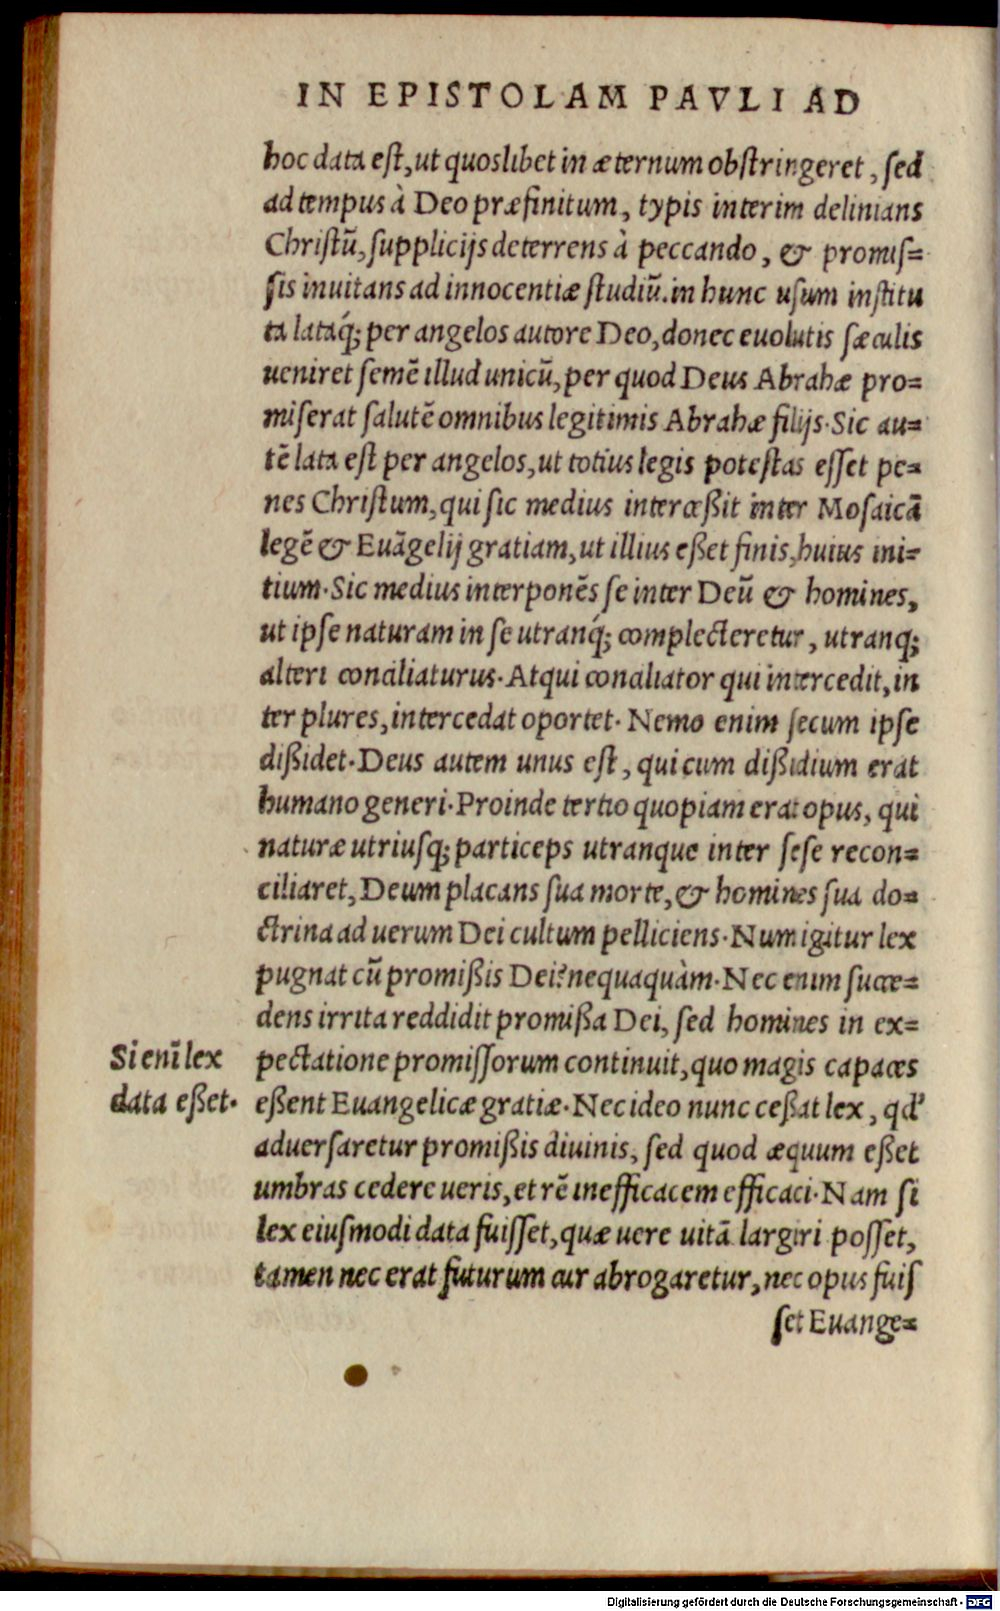 IN EPISTOLAM PAVLI AD
hoc data est, ut quoslibet in æternum obstringeret, sed
ad tempus à Deo præfinitum, typis interim delinians
Christũ, supplicijs deterrens à peccando, & promis=
sis inuitans ad innocentiæ studiũ. in hunc usum institu
ta lataq́; per angelos autore Deo, donec euolutis sæculis
ueniret semẽ illud unicũ, per quod Deus Abrahæ pro=
miserat salutẽ omnibus legitimis Abrahæ filijs. Sic au=
tẽ lata est per angelos, ut totius legis potestas esset pe=
nes Christum, qui sic medius intercęßit inter Mosaicã
legẽ & Euãgelij gratiam, ut illius eßet finis, huius ini=
tium. Sic medius interponẽs se inter Deũ & homines,
ut ipse naturam in se utranq́; complecteretur, utranq;
alteri conciliaturus. Atqui conciliator qui intercedit, in
ter plures, intercedat oportet. Nemo enim secum ipse
dißidet. Deus autem unus est, qui cum dißidium erat
humano generi. Proinde tertio quopiam erat opus, qui
naturæ utriusq; particeps utranque inter sese recon=
ciliaret, Deum placans sua morte, & homines sua do=
ctrina ad uerum Dei cultum pelliciens. Num igitur lex
pugnat cũ promißis Dei? nequaquàm. Nec enim succe=
dens irrita reddidit promißa Dei, sed homines in ex=
Si enĩ lex
data eßet.
pectatione promissorum continuit, quo magis capaces
eßent Euangelicæ gratiæ. Nec ideo nunc ceßat lex, qd'
aduersaretur promißis diuinis, sed quod æquum eßet
umbras cedere ueris, et rẽ inefficacem efficaci. Nam si
lex eiusmodi data fuisset, quæ uere uitã largiri posset,
tamen nec erat futurum cur abrogaretur, nec opus fuis
set Euange=
Digitalisierung gefördert durch die Deutsche Forschungsgemeinschaft - DFG